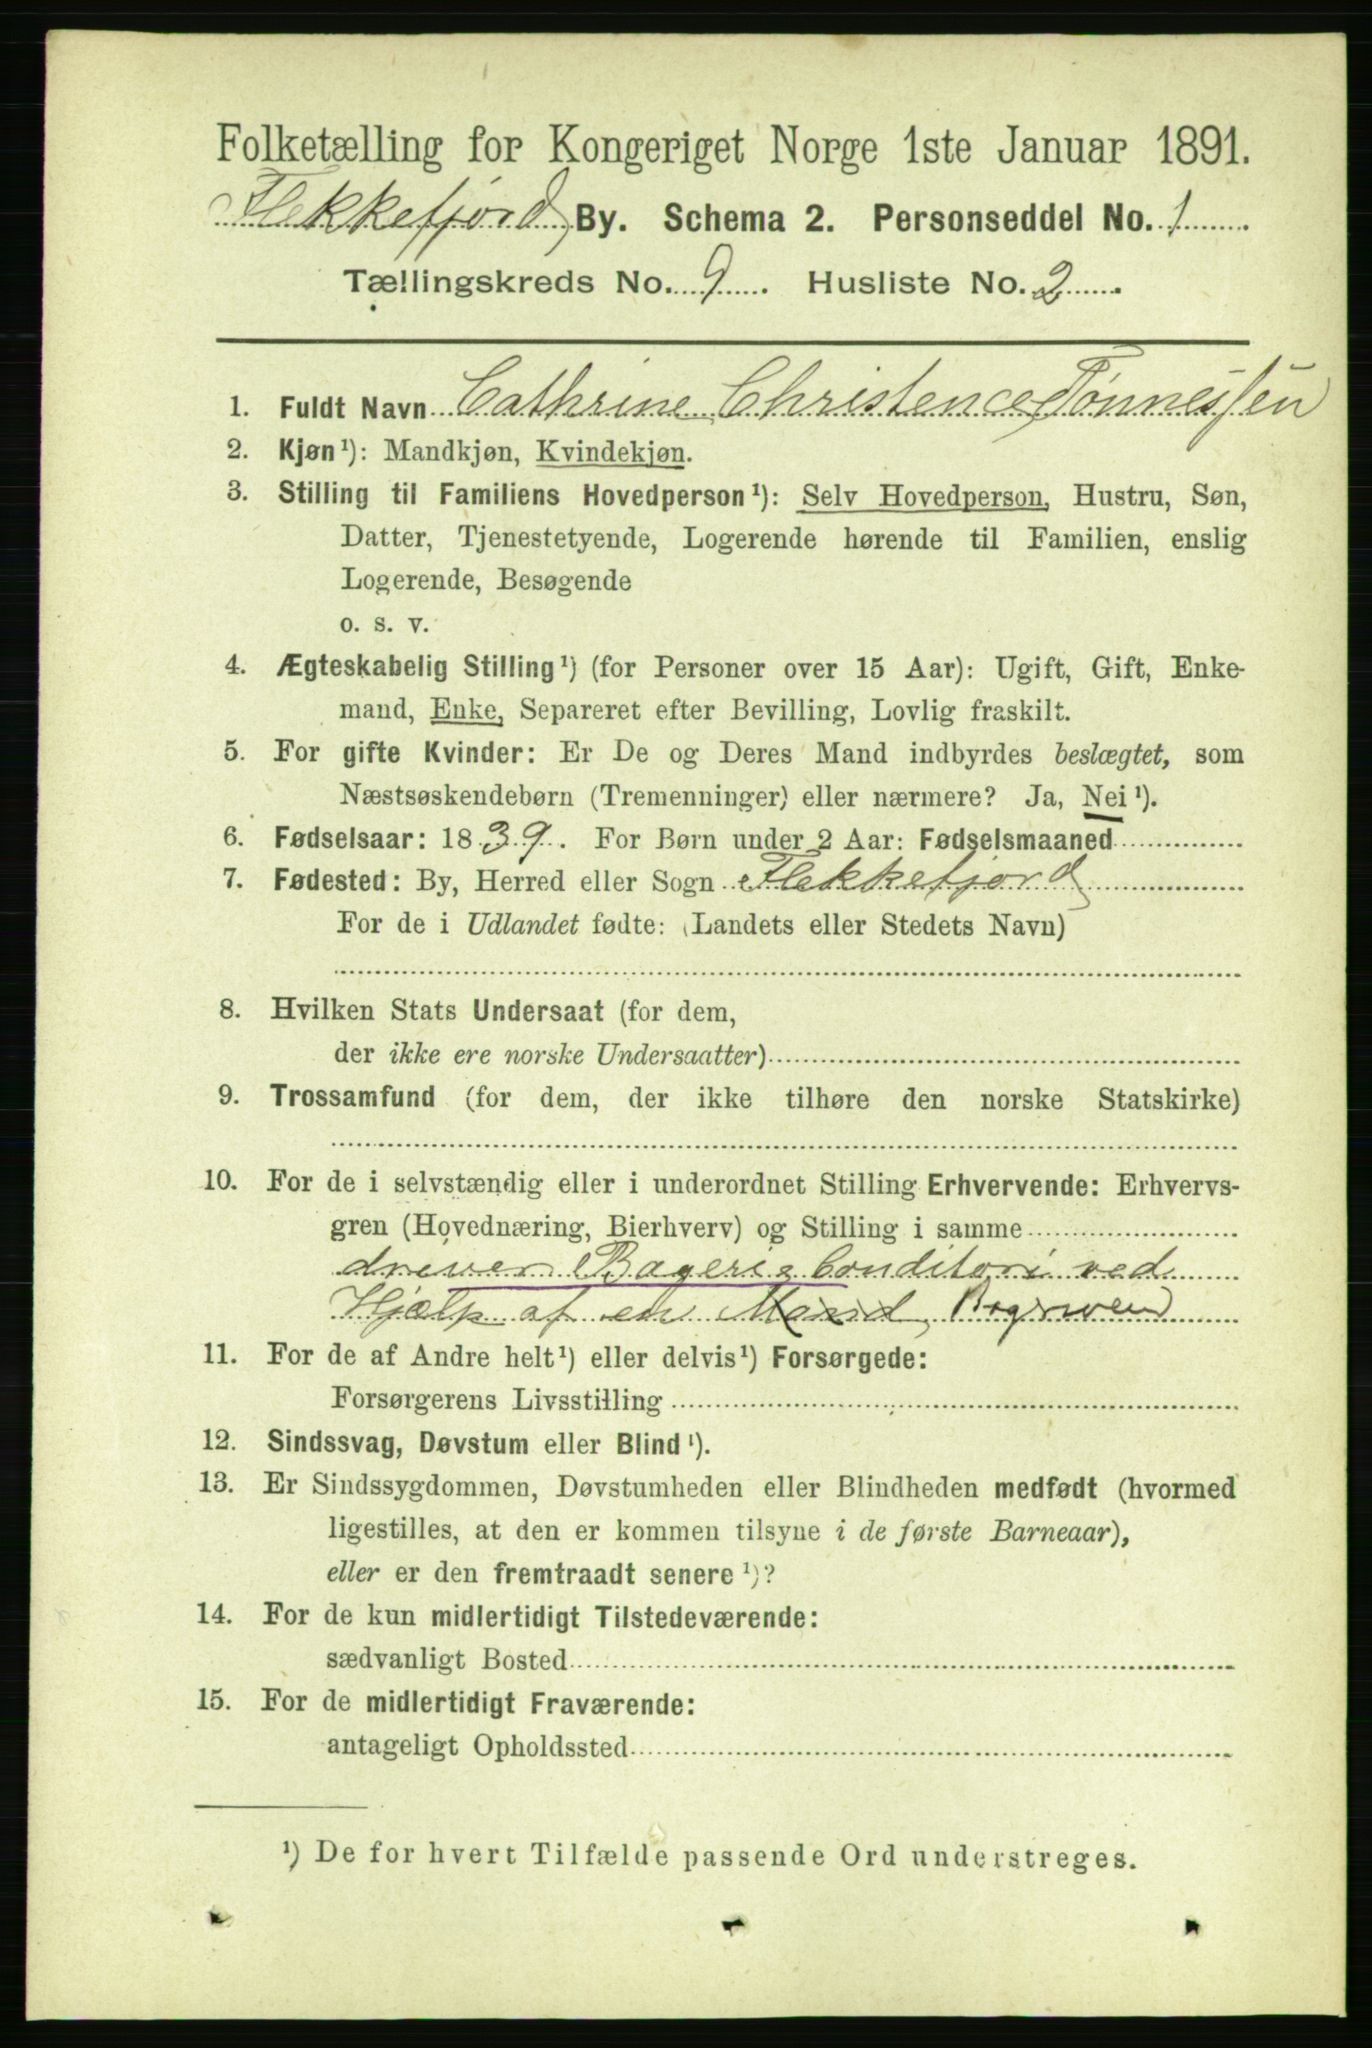 Folketælling for Kongeriget Norge 1ste Januar 1891.
Flekkefjord By. Schema 2. Personseddel No. 1
Tællingskreds No. 9. Husliste No. 2.
1. Fuldt Navn Cathrine Christence Tønnessen
2. Kjøn¹): Mandkjøn, Kvindekjøn.
3. Stilling til Familiens Hovedperson¹): Selv Hovedperson, Hustru, Søn,
Datter, Tjenestetyende, Logerende hørende til Familien, enslig
Logerende, Besøgende
o. s. v.
4. Ægteskabelig Stilling¹) (for Personer over 15 Aar): Ugift, Gift, Enke-
mand, Enke, Separeret efter Bevilling, Lovlig fraskilt.
5. For gifte Kvinder: Er De og Deres Mand indbyrdes beslægtet, som
Næstsøskendebørn (Tremenninger) eller nærmere? Ja, Nei¹).
6. Fødselsaar: 1839. For Børn under 2 Aar: Fødselsmaaned
7. Fødested: By, Herred eller Sogn Flekkefjord
For de i Udlandet fødte: (Landets eller Stedets Navn)
8. Hvilken Stats Undersaat (for dem,
der ikke ere norske Undersaatter)
9. Trossamfund (for dem, der ikke tilhøre den norske Statskirke)
10. For de i selvstændig eller i underordnet Stilling Erhvervende: Erhvervs-
gren (Hovednæring, Bierhverv) og Stilling i samme
drever Bageri & Conditori ved
Hjælp af en Mand
11. For de af Andre helt¹) eller delvis¹) Forsørgede:
Forsørgerens Livsstilling
12. Sindssvag, Døvstum eller Blind¹).
13. Er Sindssygdommen, Døvstumheden eller Blindheden medfødt (hvormed
ligestilles, at den er kommen tilsyne i de første Barneaar),
eller er den fremtraadt senere¹)?
14. For de kun midlertidigt Tilstedeværende:
sædvanligt Bosted
15. For de midlertidigt Fraværende:
antageligt Opholdssted
¹) De for hvert Tilfælde passende Ord understreges.